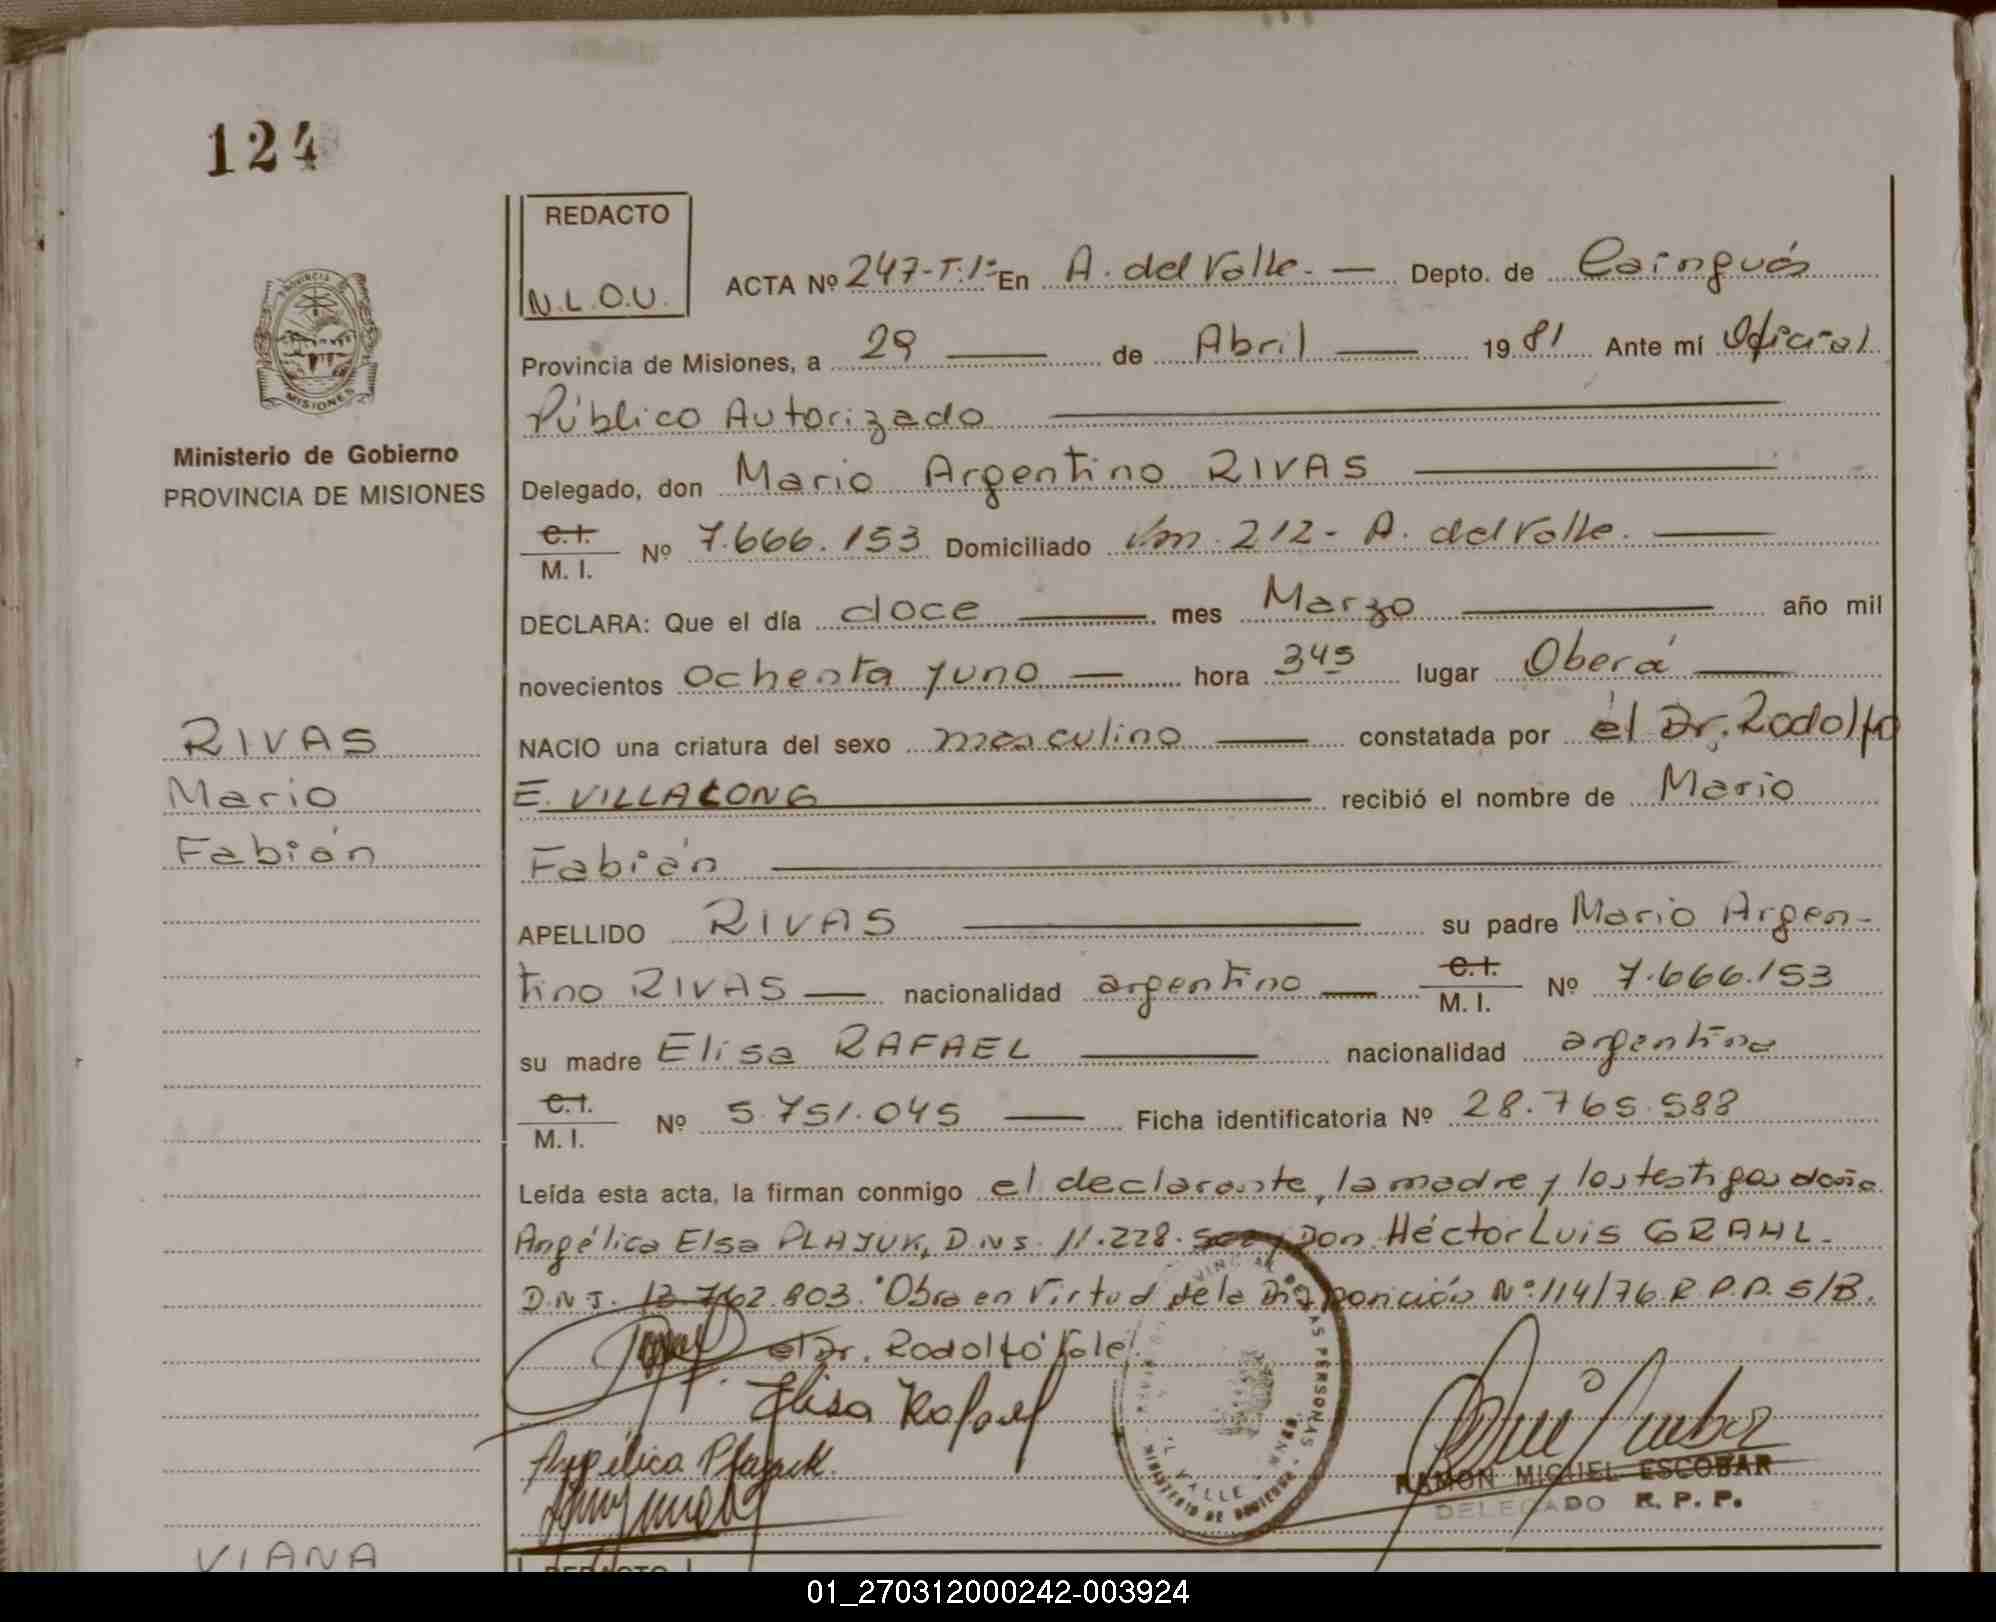 124
REDACTO
N.L.O.U.
ACTA Nº 247-T.1º En A. del Valle. — Depto. de Cainguás
Provincia de Misiones, a 29 — de Abril — 1981 Ante mí Oficial
Público Autorizado
Ministerio de Gobierno
PROVINCIA DE MISIONES
Delegado, don Mario Argentino RIVAS
C.I.
M. I. Nº 7.666.153 Domiciliado Km 212 - A. del Valle.
DECLARA: Que el día doce — mes Marzo — año mil
novecientos ochenta y uno — hora 345 lugar Oberá
RIVAS
Mario
Fabián
NACIO una criatura del sexo masculino — constatada por el Dr. Rodolfo
E. VILLALONG — recibió el nombre de Mario
Fabián
APELLIDO RIVAS — su padre Mario Argen-
tino RIVAS — nacionalidad argentino — C.I. M. I. Nº 7.666.153
su madre Elisa RAFAEL — nacionalidad argentina
C.I.
M. I. Nº 5.751.045 — Ficha identificatoria Nº 28.765.588
Leída esta acta, la firman conmigo el declarante, la madre y los testigos doña
Angélica Elsa PLAJUK, D.N.I. 11.228. Don Héctor Luis GRAHL-
D.N.I. 13.762.803. "Obra en Virtud de la Disposición Nº 114/76 R.P.P. S/B.
el Dr. Rodolfo" Vale.
Elisa Rafael
Angélica Plajuk
RAMON MIGUEL ESCOBAR
DELEGADO R. P. P.
VIANA
REDACTO
01_270312000242-003924